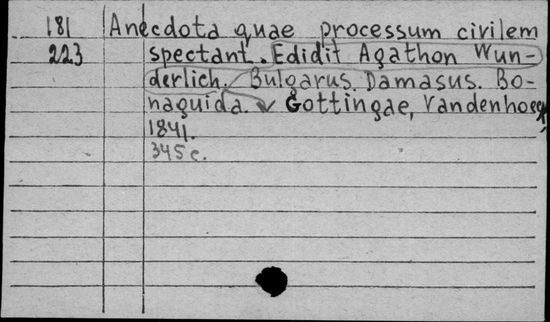 181 Anecdota quae processum civilem
223 spectant. Edidit Agathon Wun-
derlich. Bulgarus. Damasus. Bo-
naguida. Gottingae, Vandenhoeg
1841.
345 c.